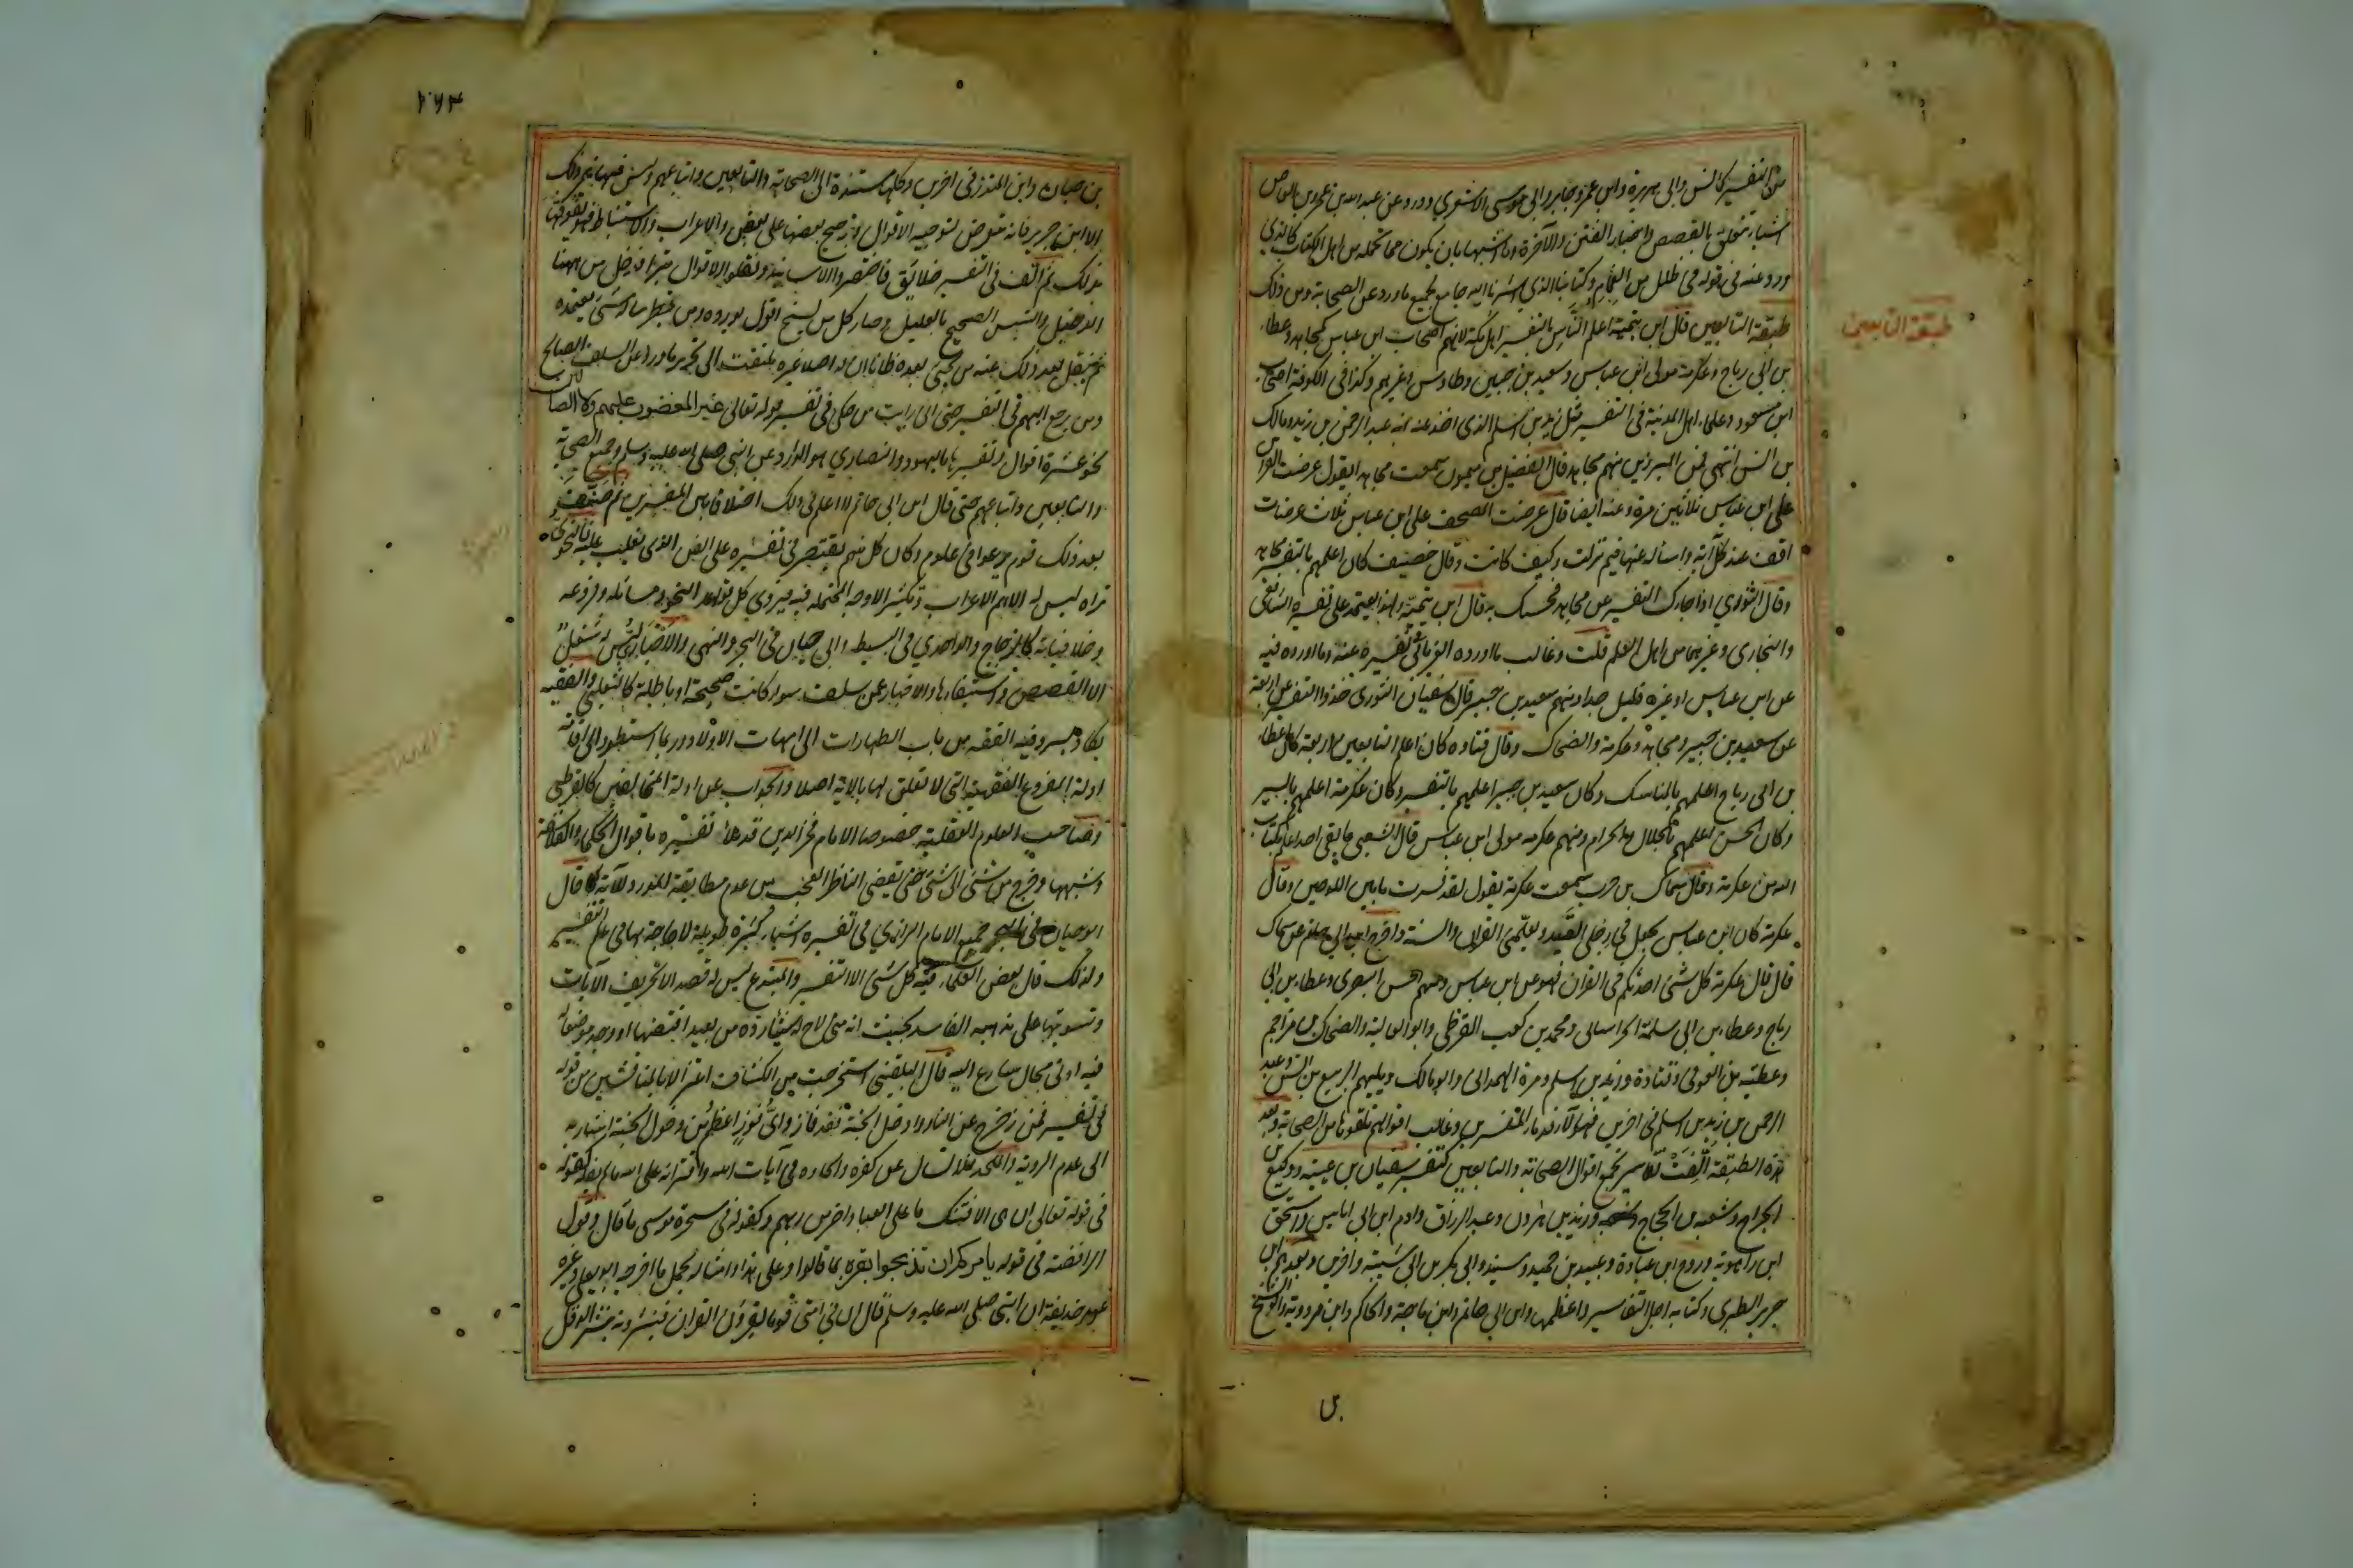 من التفسير كانس وابي هريرة وابن عمر وجابر وابي موسى الاشعري وورد عن عبد الله بن عمرو بن العاص
اشياء تتعلق بالقصص واخبار الفتن والآخرة وما اشبهها بان يكون مما تحمله من اهل الكتاب كالذي
ورد عنه في قوله في ظلل من الغمام وكتابنا الذي اشرنا اليه جامع لجميع ما ورد عن الصحابة ومن ذلك
طبقة التابعين قال ابن تيمية اعلم الناس بالتفسير اهل مكة لانهم اصحاب ابن عباس كمجاهد وعطاء
بن ابي رباح وعكرمة مولى ابن عباس وسعيد بن جبير وطاوس وغيرهم وكذا في الكوفة اصحاب
ابن مسعود وعلماء اهل المدينة في التفسير مثل زيد بن اسلم الذي اخذ عنه ابنه عبد الرحمن بن زيد ومالك
بن انس انتهى فمن المبرزين منهم مجاهد قال الفضل بن ميمون سمعت مجاهد ايقول عرضت القران
على ابن عباس ثلاثين مرة وعنه ايضا قال عرضت المصحف على ابن عباس ثلاث عرضات
اقف عند كل آية واسأله عنها فيم نزلت وكيف كانت وقال خصيف كان اعلمهم بالتفسير مجاهد
وقال الثوري اذا جاءك التفسير عن مجاهد فحسبك به قال ابن تيمية ولهذا يعتمد على تفسيره الشافعي
والبخاري وغيرهما من اهل العلم قلت وغالب ما اورده الفريابي في تفسيره عنه وما اورده فيه
عن ابن عباس او غيره قليل جدا ومنهم سعيد بن جبير قال سفيان الثوري خذوا التفسير عن اربعة
عن سعيد بن جبير ومجاهد وعكرمة والضحاك وقال قتادة كان اعلم التابعين اربعة كان عطاء
بن ابي رباح اعلمهم بالمناسك وكان سعيد بن جبير اعلمهم بالتفسير وكان عكرمة اعلمهم بالسير
وكان الحسن اعلمهم بالحلال والحرام ومنهم عكرمة مولى ابن عباس قال الشعبي ما بقي احد اعلم بكتاب
الله من عكرمة وقال سماك بن حرب سمعت عكرمة يقول لقد فسرت ما بين اللوحين وقال
عكرمة كان ابن عباس يجعل في رجلي القيد ويعلمني القران والسنة واخرج ابن ابي حاتم عن سماك
قال قال عكرمة كل شئ احدثكم في القران فهو عن ابن عباس ومنهم الحسن البصري وعطاء بن ابي
رباح وعطاء بن ابي سلمة الخراساني ومحمد بن كعب القرظي وابو العالية والضحاك بن مزاحم
وعطية بن العوفي وقتادة وزيد بن اسلم ومرة الهمداني وابو مالك ويليهم الربيع بن انس وعبد
الرحمن بن زيد بن اسلم في اخرين فهؤلاء قدماء المفسرين وغالب اقوالهم تلقوها من الصحابة ثم بعد
هذه الطبقة الفت تفاسير تجمع اقوال الصحابة والتابعين كتفسير سفيان بن عيينة ووكيع بن
الجراح وشعبة بن الحجاج ويزيد بن هرون وعبد الرزاق وادم ابن ابي اياس واسحق
ابن راهوية وروح ابن عبادة وعبيد بن حميد وسنيد وابي بكر بن ابي شيبة واخرين وبعدهم ابن
جرير الطبري وكتابه اجل التفاسير واعظمها وابن ابي حاتم وابن ماجة والحاكم وابن مردوية وابو الشيخ
بن
طبقة التابعين
٢٦٤
بن حبان وابن المنذر في اخرين وكلها مستندة الى الصحابة والتابعين واتباعهم وليس فيها غير ذلك
الا ابن جرير فانه يتعرض لتوجيه الاقوال وترجيح بعضها على بعض والاعراب والاستنباط فهو يفوقها
بذلك ثم الف في التفسير خلائق فاختصروا الاسانيد ونقلوا الاقوال بترا فدخل من ههنا
الدخيل والتبس الصحيح بالعليل وصار كل من يسنح له قول يورده ومن يخطر بباله شئ يعتمده
ثم ينقل بعد ذلك عنه من يجئ بعده ظانا ان له اصلا غير ملتفت الى تحرير ما ورد عن السلف الصالح
ومن يرجع اليهم في التفسير حتى اني رايت من حكى في تفسير قوله تعالى غير المغضوب عليهم ولا الضالين
نحو عشرة اقوال وتفسيرها باليهود والنصاري هو الوارد عن النبي صلى الله عليه وسلم وجميع الصحابة
والتابعين واتباعهم حتى قال ابن ابي حاتم لا اعلم في ذلك اختلافا بين المفسرين ثم صنف
بعد ذلك قوم برعوا في علوم وكان كل منهم يقتصر في تفسيره على الفن الذي يغلب عليه فالنحوي
تراه ليس له الا الاعراب وتكثير الاوجه المحتملة فيه ويروي كل قواعد النحو ومسائله وفروعه
وخلافياته كالزجاج والواحدي في البسيط وابي حيان في البحر والنهر والاخباري ليس له شغل
الا القصص واستيفاءها والاخبار عمن سلف سواء كانت صحيحة او باطلة كالثعلبي والفقيه
يكاد يسرد فيه الفقه من باب الطهارات الى امهات الاولاد وربما استطرد الى اقامة
ادلة الفروع الفقهية التي لا تعلق لها بالاية اصلا والجواب عن ادلة المخالفين كالقرطبي
وصاحب العلوم العقلية خصوصا الامام فخر الدين قد ملأ تفسيره باقوال الحكماء والفلاسفة
وشبهها وخرج من شئ الى شئ حتى يقضي الناظر العجب من عدم مطابقة المورد للآية قال
ابو حيان في البحر جمع الامام الرازي في تفسيره اشياء كثيرة طويلة لا حاجة بها في علم التفسير
ولذلك قال بعض العلماء فيه كل شئ الا التفسير والمبتدع ليس له قصد الا تحريف الآيات
وتسويتها على مذهبه الفاسد بحيث انه متى لاح له شاردة من بعيد اقتنصها او وجد موضعا له
فيه ادنى مجال سارع اليه قال البلقيني استخرجت من الكشاف اعتزالا بالمناقشين من قوله
في تفسير فمن زحزح عن النار وادخل الجنة فقد فاز واي فوز اعظم من دخول الجنة اشار به
الى عدم الروية والملحد فلا تسأل عن كفره والحاده في آيات الله وافترائه على الله ما لم يقله كقوله
في قوله تعالى ان هي الا فتنتك ما على العباد اضر من ربهم وكقوله في سحرة موسى ما قال وقول
الرافضة في قوله يامركم ان تذبحوا بقرة ما قالوا وعلى هذا وامثاله يحمل ما اخرجه ابو يعلى وغيره
عن حذيفة ان النبي صلى الله عليه وسلم قال ان في امتي قوما يقرؤن القران ينثرونه نثر الدقل